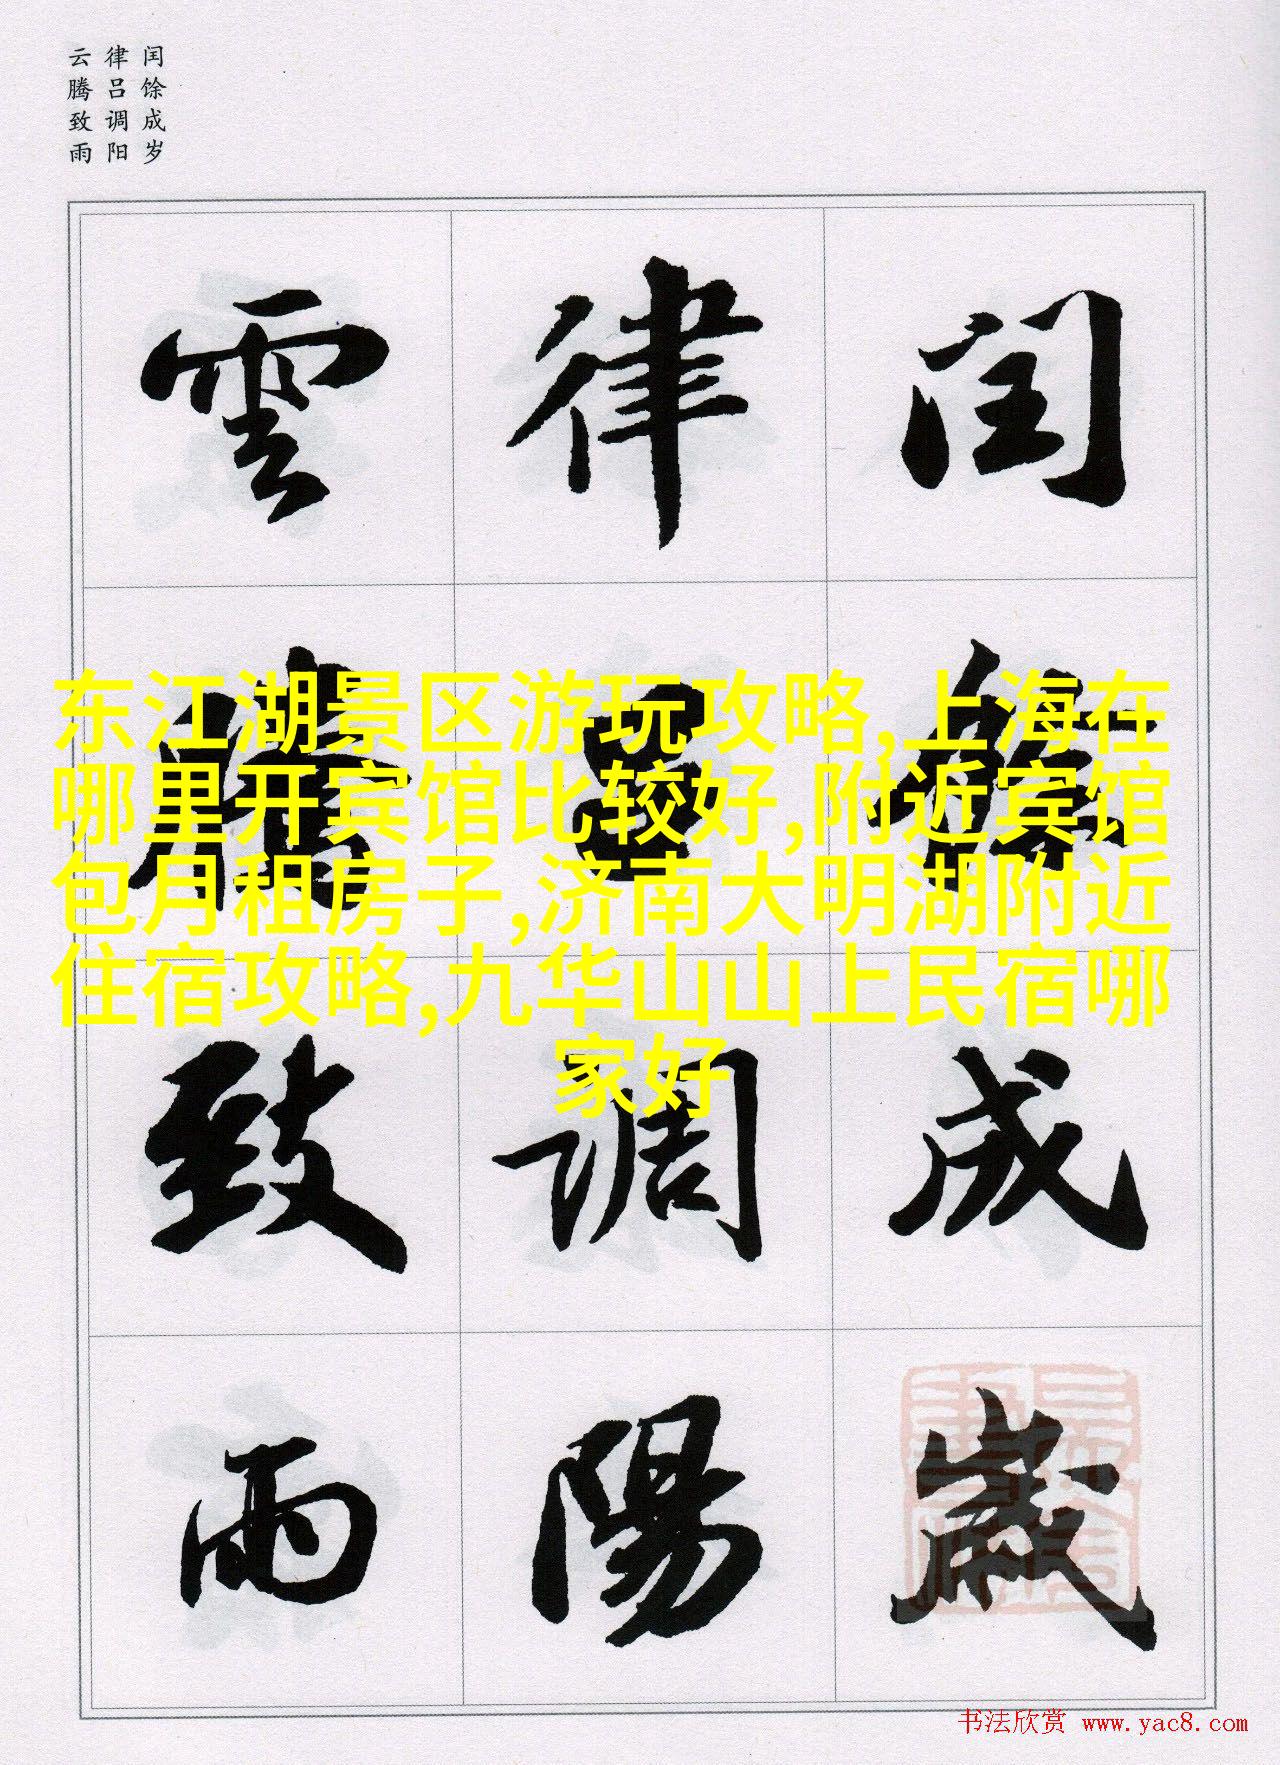 闰馀成岁
律吕调阳
云腾致雨
閏餘成歲
律吕調陽
雲騰致雨
东江湖景区游玩攻略,上海在
哪里开宾馆比较好,附近宾馆
包月租房子,济南大明湖附近
住宿攻略,九华山山上民宿哪
家好
书法欣赏 www.yac8.com